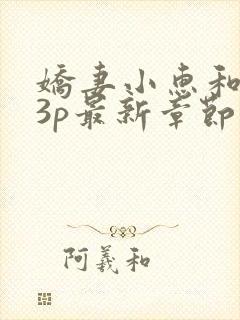 嬌妻小惠和
3p最新章節
阿義和